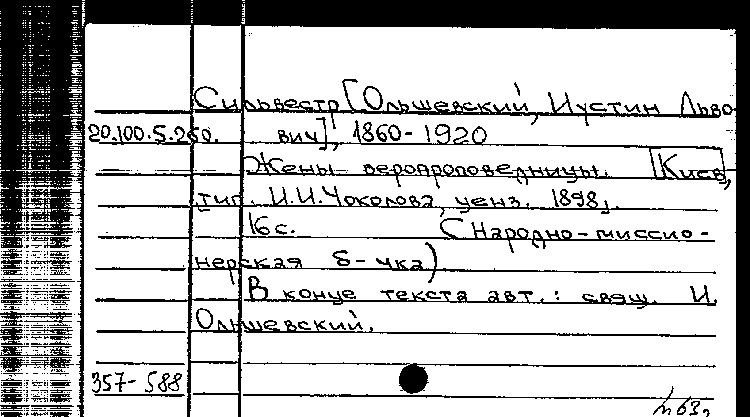 Сильвестр [Ольшевский, Иустин Льво-
20.100.5.260. вич], 1860-1920
Жены веропроповедницы. [Киев,
тип. И.И. Чоколова, ценз. 1898].
16 с. (Народно-миссио-
нерская б-чка)
В конце текста авт.: свящ. И.
Ольшевский.
357-588